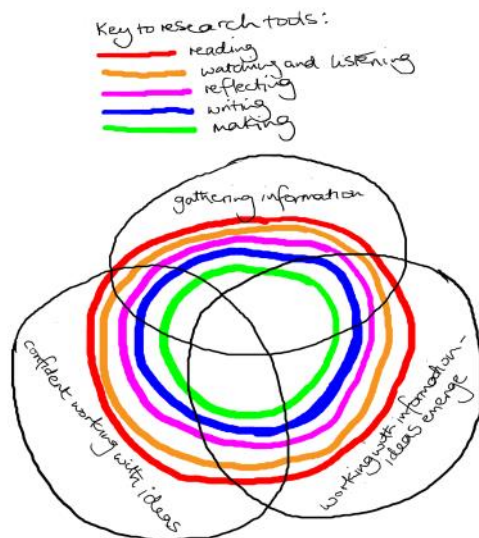 Key to research tools:
reading
watching and listening
reflecting
writing
making
gathering information
confident working with ideas
working with information -
ideas emerge